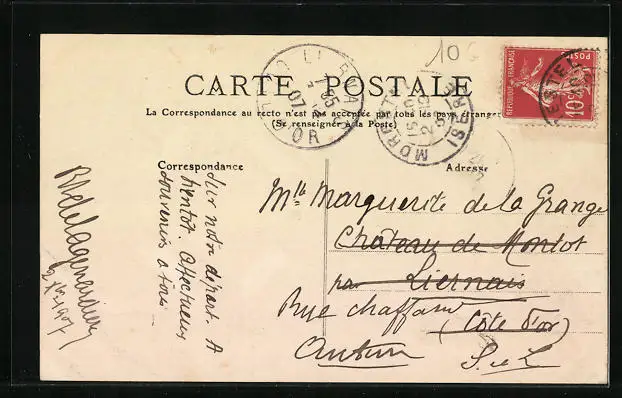 10
CARTE POSTALE
La Correspondance au recto n'est pas acceptée par tous les pays étrangers
(Se renseigner à la Poste)
RÉPUBLIQUE FRANÇAISE
POSTES
10c
MORESTEL
ISÈRE
D'OR
Correspondance
sur notre départ. A
bientôt. Affectueux
souvenirs à tous
1907
Adresse
Mlle Marguerite de la Grange
Château de Montot
par Liernais
(Côte d'or)
Rue Chaffaut
Autun
S. et L.